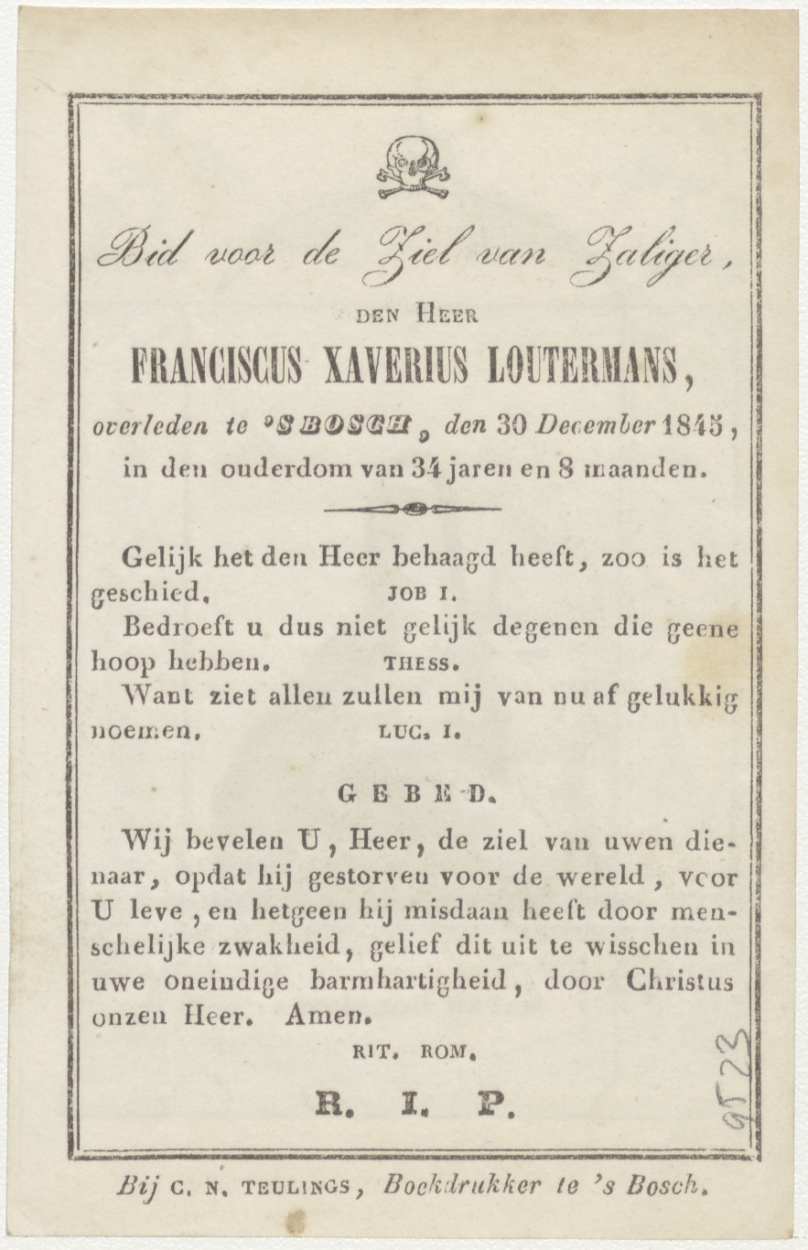 Bid voor de Ziel van Zaliger,
DEN HEER
FRANCISCUS XAVERIUS LOUTERMANS,
overleden te 'S BOSCH, den 30 December 1845,
in den ouderdom van 34 jaren en 8 maanden.
Gelijk het den Heer behaagd heeft, zoo is het
geschied. JOB I.
Bedroeft u dus niet gelijk degenen die geene
hoop hebben. THESS.
Want ziet allen zullen mij van nu af gelukkig
noemen. LUC. I.
GEBED.
Wij bevelen U, Heer, de ziel van uwen die-
naar, opdat hij gestorven voor de wereld, voor
U leve, en hetgeen hij misdaan heeft door men-
schelijke zwakheid, gelief dit uit te wisschen in
uwe oneindige barmhartigheid, door Christus
onzen Heer. Amen.
RIT. ROM.
R. I. P.
9523
Bij C. N. TEULINGS, Boekdrukker te 's Bosch.